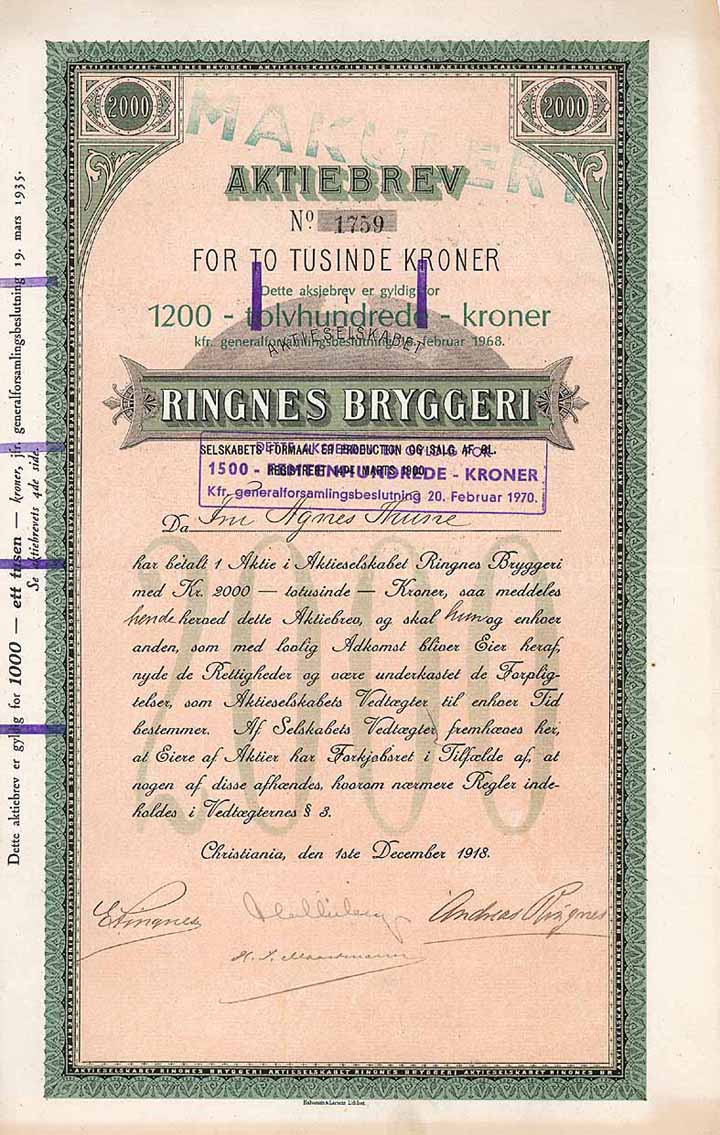 2000
2000
MAKULERT
AKTIEBREV
Nº 1759
FOR TO TUSINDE KRONER
Dette aksjebrev er gyldig for
1200 - tolvhundrede - kroner
kfr. generalforsamlingsbeslutning februar 1968.
i
AKTIESELSKABET
RINGNES BRYGGERI
SELSKABETS FORMAAL ER PRODUCTION OG SALG AF ØL.
REGISTRERT MARTS 1900
DETTE ER GYLDIG FOR
1500 - FEMTENHUNDREDE - KRONER
Kfr. generalforsamlingsbeslutning 20. Februar 1970.
Da Fru Agnes Thune
har betalt 1 Aktie i Aktieselskabet Ringnes Bryggeri
med Kr. 2000 — totusinde — Kroner, saa meddeles
hende herved dette Aktiebrev, og skal hun og enhver
anden, som med lovlig Adkomst bliver Eier heraf,
nyde de Rettigheder og være underkastet de Forplig-
telser, som Aktieselskabets Vedtægter til enhver Tid
bestemmer. Af Selskabets Vedtægter fremhæves her,
at Eiere af Aktier har Forkjøbsret i Tilfælde af, at
nogen af disse afhændes, hvorom nærmere Regler inde-
holdes i Vedtægternes § 3.
2000
Christiania, den 1ste December 1918.
E Ringnes
Andreas Ringnes
Dette aktiebrev er gyldig for 1000 — ett tusen — kroner, jfr. generalforsamlingsbeslutning 19. mars 1935.
Se aktiebrevets 4de side.
AKTIESELSKABET RINGNES BRYGGERI